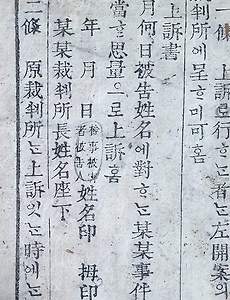 一條 上訴를行ᄒᆞᄂᆞᆫ者는左開案의
判所에呈ᄒᆞ미可홈
上訴書
月何日被告姓名에對ᄒᆞᄂᆞᆫ某某事件
當ᄒᆞᆫ思量으로上訴홈
年 月 日 檢事被害者被告人 姓名印 拇印
某某裁判所長姓名座下
二條 原裁判所는上訴잇는時에는